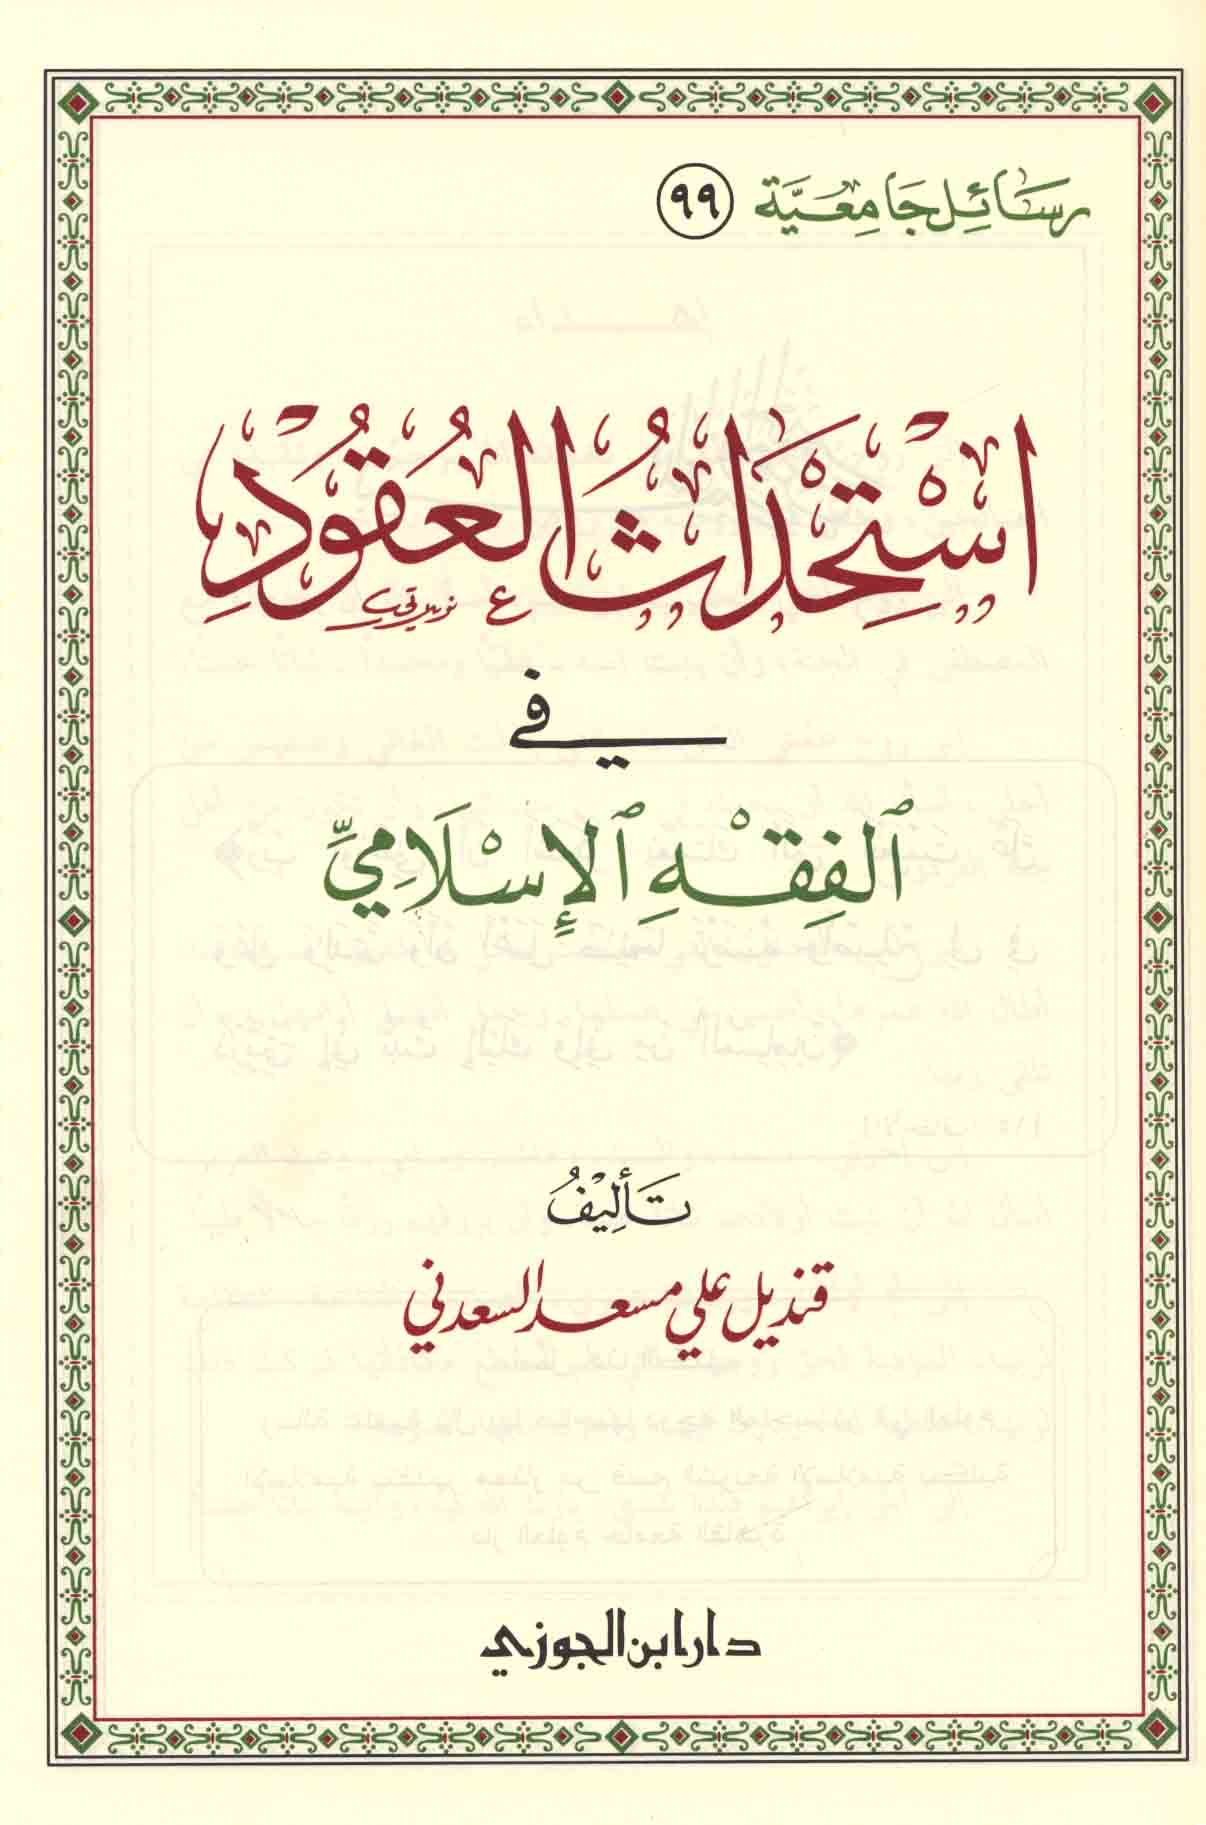 رَسَائِل جَامِعيَّة ٩٩
اسْتِحْدَاثُ العُقُودِ
في
الفِقْهِ الإِسْلَامِيِّ
تَأليْفُ
قنديل علي مسعد السعدني
دار ابن الجوزي